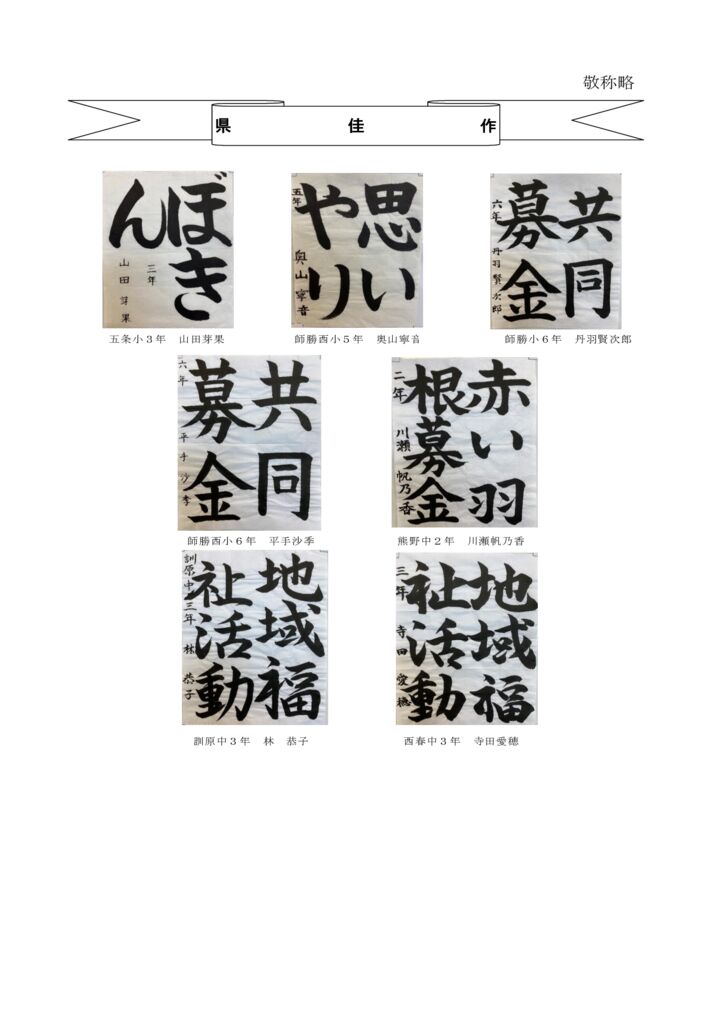 敬称略
県佳作
ぼき
ん
三年
山田芽果
五条小３年　山田芽果
思い
やり
五年
奥山寧音
師勝西小５年　奥山寧音
共同
募金
六年
丹羽賢次郎
師勝小６年　丹羽賢次郎
共同
募金
六年
平手沙季
師勝西小６年　平手沙季
赤い羽
根募金
二年
川瀬帆乃香
熊野中２年　川瀬帆乃香
地域福
祉活動
訓原中三年　林恭子
訓原中３年　林　恭子
地域福
祉活動
三年
寺田愛穂
西春中３年　寺田愛穂